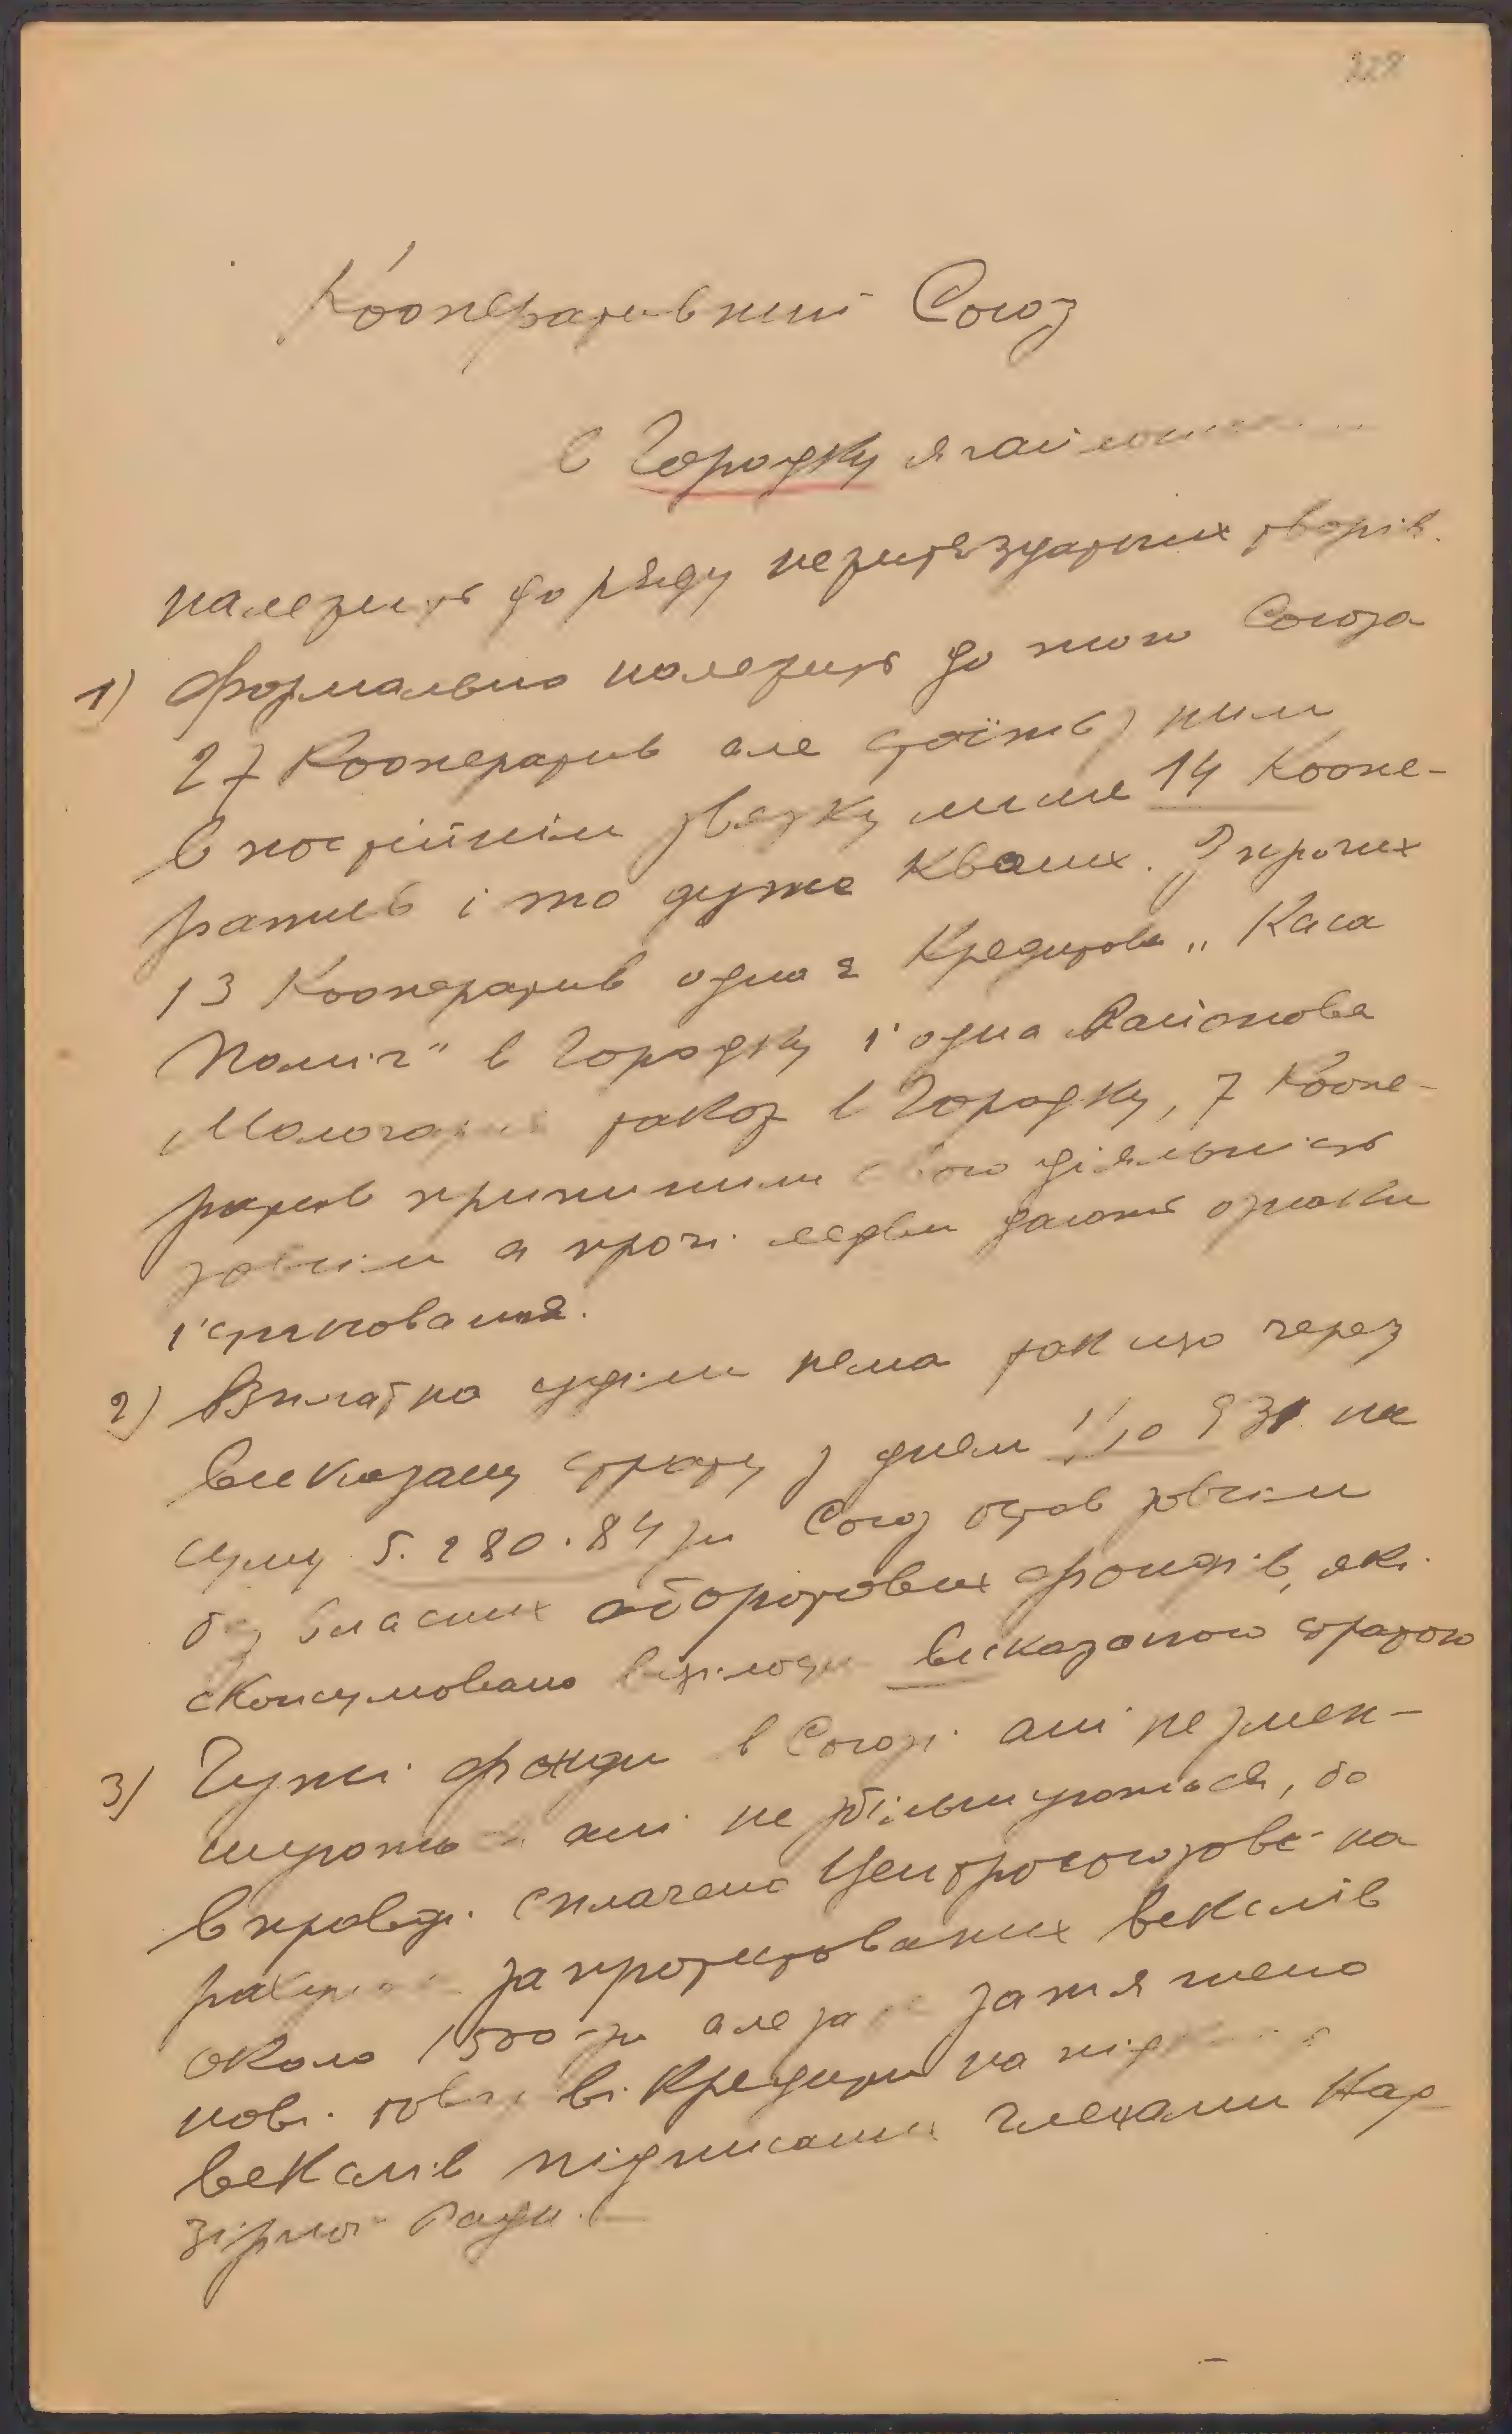 228
Кооперативний Союз
в Городку ягайлонськ
належить до ряду нежитєздатних творів.
1) Формально належить до того Союза
27 Кооператив але стоїть з ним
в постійнім звязку лише 14 Коопе-
ратив і то дуже кволих. З прочих
13 Кооператив одна є Кредитова „Каса
Поміч" в Городку і одна Районова
Молочарня також в Городку, 7 Коопе-
ратив припинили свою діяльність
зовсім а прочі ледви дають ознаки
існтовання.
2) Вплат на уділи нема так що через
виказану страту з днем 1/10 931 на
суму 5.280.84 зл Союз остав зовсім
без власних оборотових фондів, які
сконсумовано виказаною стратою
3) Чужі фонди в Союзі ані не змен-
шують ані не збільшуються, бо
вправді сплачено Центросоюзови на
рахунок запротестованих векслів
около 1500 зл але за затягнено
нові товарові кредити на під
векслів підписаних членами Над
зірної Ради.